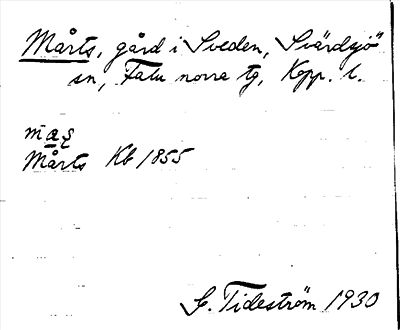 Mårts, gård i Sveden, Svärdsjö
sn, Falu norra tg, Kopp. l.
Mårts Kb 1855
G. Tideström 1930